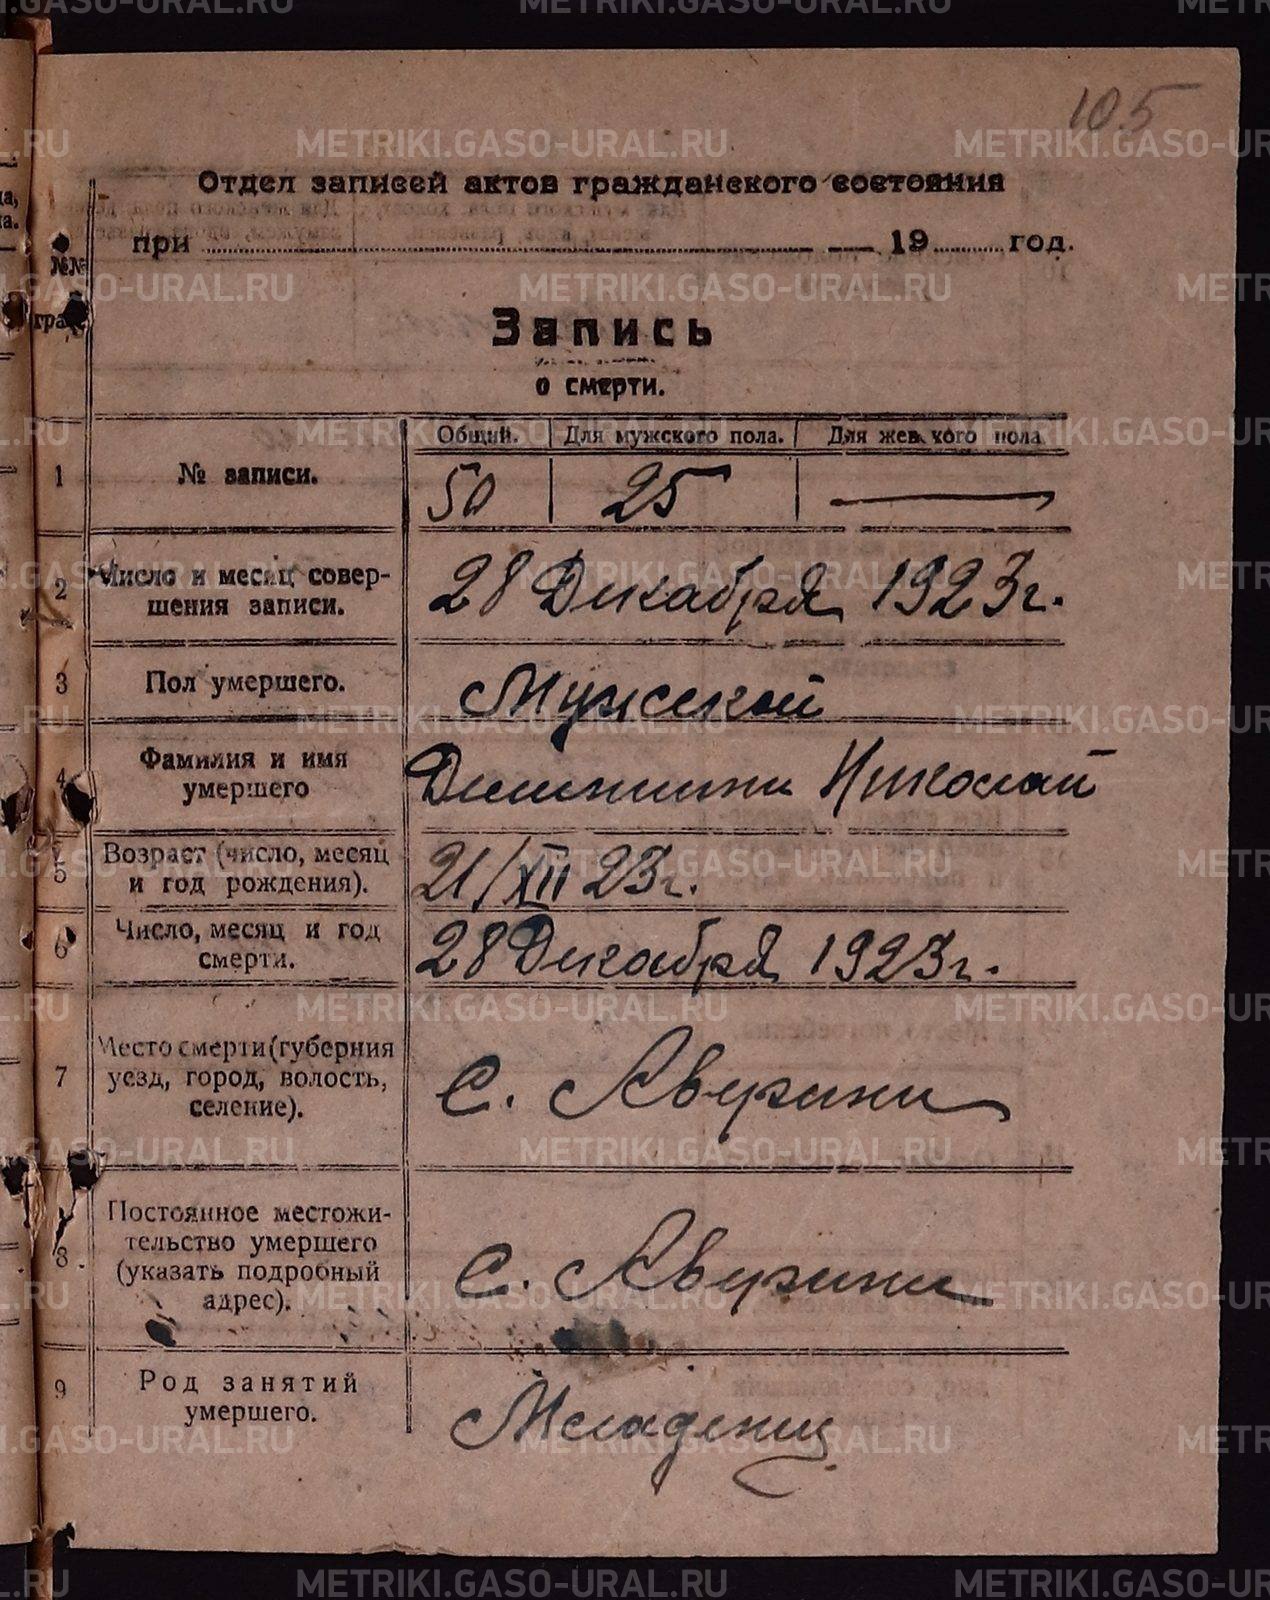 105
Отдел записей актов гражданского состояния
при 19 год.
№№
граф
Запись
о смерти.
Общий. Для мужского пола. Для женского пола
1 № записи. 50 25 —
2 Число и месяц совер-
шения записи. 28 Декабря 1923г.
3 Пол умершего. Мужской
4 Фамилия и имя
умершего Николай
5 Возраст (число, месяц
и год рождения). 21/XII 23г.
6 Число, месяц и год
смерти. 28 Декабря 1923г.
7 Место смерти (губерния
уезд, город, волость,
селение). С. Аверино
8 Постоянное местожи-
тельство умершего
(указать подробный
адрес). С. Аверино
9 Род занятий
умершего. Младенец
METRIKI.GASO-URAL.RU